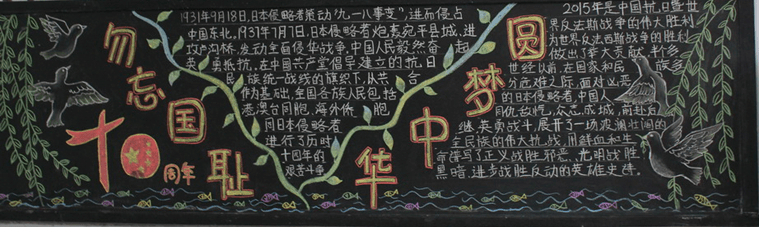 勿忘国耻
圆梦中华
70周年
1931年9月18日,日本侵略者策动“九一八事变”,进而侵占
中国东北,1937年7月7日,日本侵略者炮轰宛平县城,进
攻卢沟桥,发动全面侵华战争,中国人民毅然奋起
英勇抵抗,在中国共产党倡导建立的抗日
民族统一战线的旗帜下,以共合
作为基础,全国各族人民包括
港澳台同胞,海外侨胞
同日本侵略者
进行了历时
十四年的
艰苦斗争
2015年是中国抗日暨世
界反法斯战争的伟大胜利
为世界反法西斯战争的胜利
做出了李大贡献,半个多
世纪以前,在国家和民族多
分危难之际,面对凶恶
的日本侵略者,中国人
同仇敌忾,众志成城,前赴后
继,英勇战斗,展开了一场波澜壮阔的
全民族的伟大抗战,用鲜血和生
命谱写了正义战胜邪恶,光明战胜
黑暗,进步战胜反动的英雄史诗.